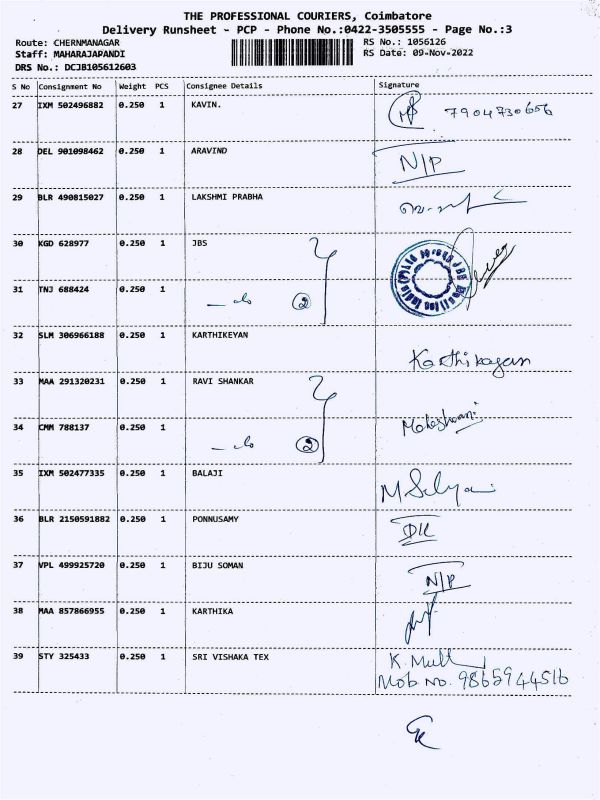 THE PROFESSIONAL COURIERS, Coimbatore
Delivery Runsheet - PCP - Phone No.:0422-3505555 - Page No.:3
Route: CHERNMANAGAR RS No.: 1056126
Staff: MAHARAJAPANDI RS Date: 09-Nov-2022
DRS No.: DCJB105612603
S No Consignment No Weight PCS Consignee Details Signature
27 IXM 502496882 0.250 1 KAVIN. 7904730656
28 DEL 901098462 0.250 1 ARAVIND N/P
29 BLR 490815027 0.250 1 LAKSHMI PRABHA
30 KGD 628977 0.250 1 JBS
31 TNJ 688424 0.250 1 2
32 SLM 306966188 0.250 1 KARTHIKEYAN Karthikayan
33 MAA 291320231 0.250 1 RAVI SHANKAR
34 CMM 788137 0.250 1 2 Maheshwari
35 IXM 502477335 0.250 1 BALAJI
36 BLR 2150591882 0.250 1 PONNUSAMY DK
37 VPL 499925720 0.250 1 BIJU SOMAN N/P
38 MAA 857866955 0.250 1 KARTHIKA
39 STY 325433 0.250 1 SRI VISHAKA TEX K. Mull
Mob No. 9865944516